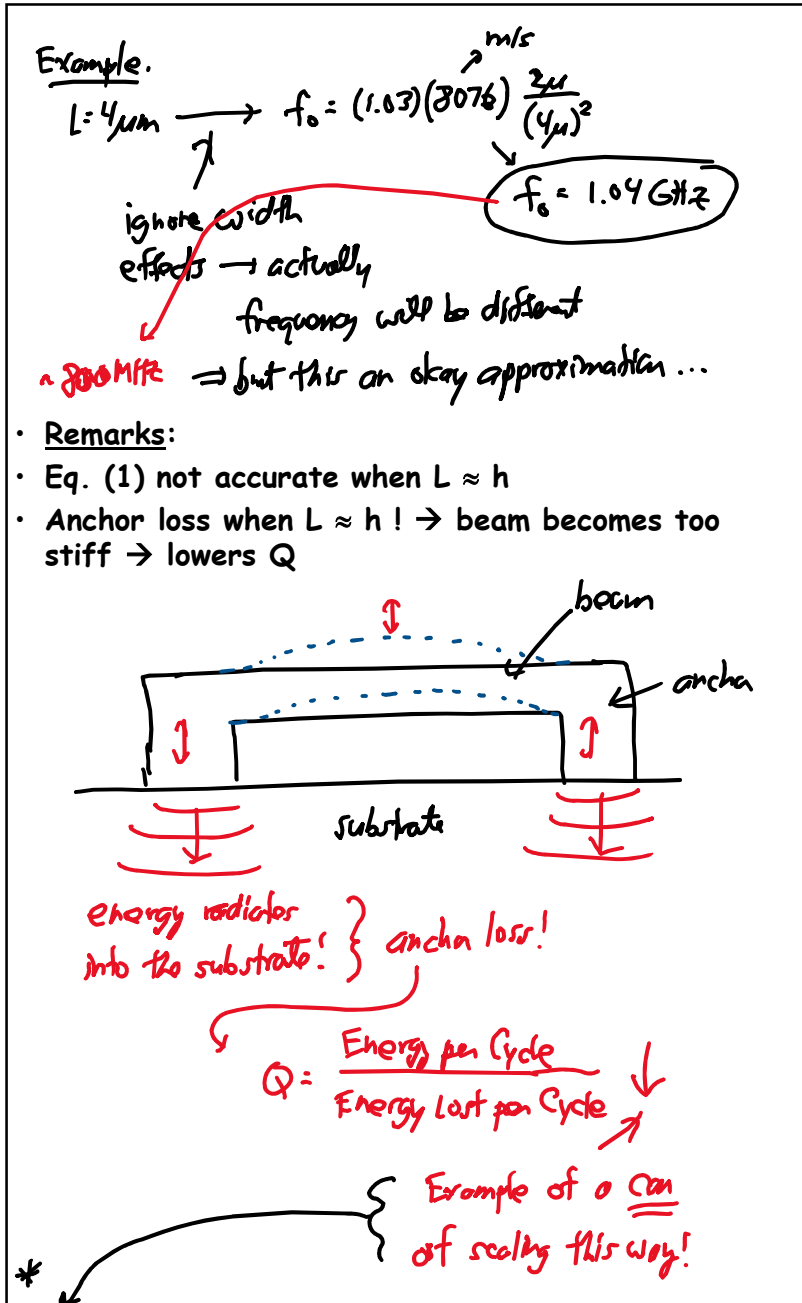 Example.
m/s
L = 4μm → f₀ = (1.03)(8076) 2μ/(4μ)²
f₀ = 1.04 GHz
ignore width
effects → actually
frequency will be different
~ 800 MHz ⇒ but this an okay approximation ...
• Remarks:
• Eq. (1) not accurate when L ≈ h
• Anchor loss when L ≈ h ! → beam becomes too
stiff → lowers Q
beam
anchor
substrate
energy radiates
into the substrate! } anchor loss!
Q = Energy per Cycle / Energy Lost per Cycle ↓
Example of a Con
of scaling this way!
*